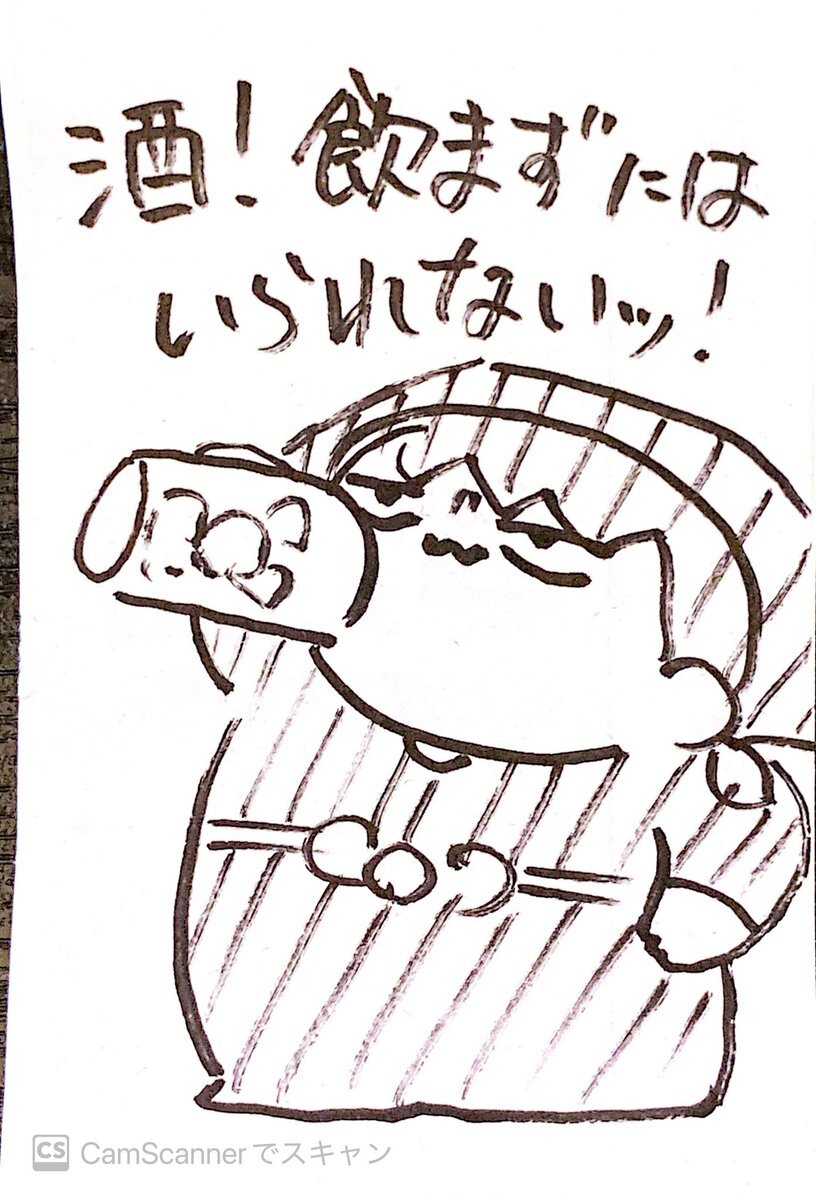 酒！飲まずには
いられないッ！
CS CamScannerでスキャン